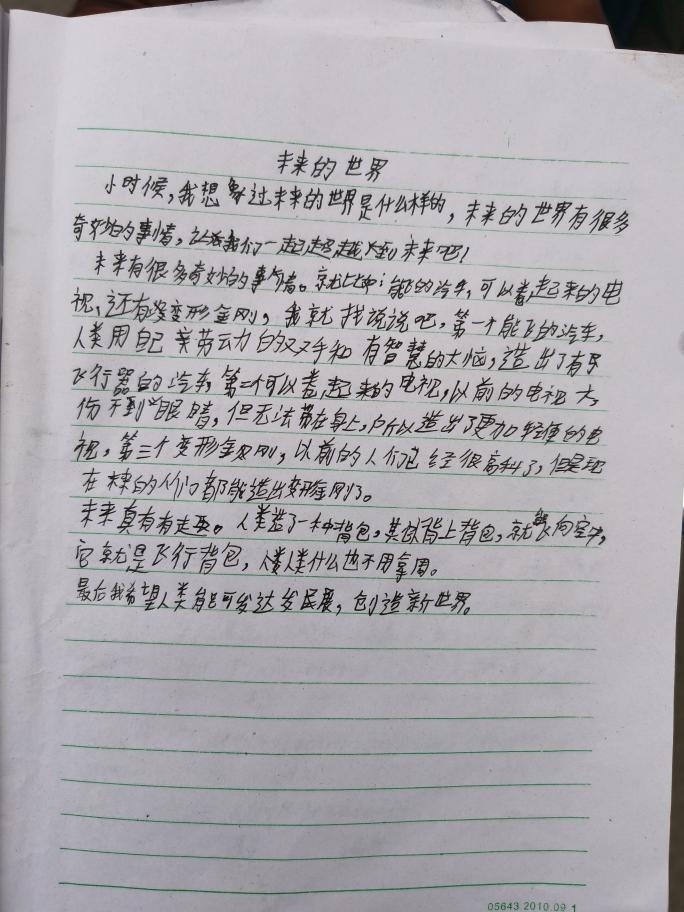 未来的世界
小时候,我想象过未来的世界是什么样的,未来的世界有很多
奇妙的事情,让我们一起超越到未来吧!
未来有很多奇妙的事情。就比如:能的汽车,可以卷起来的电
视,还有变形金刚,我就找说说吧,第一个能飞的汽车,
人类用自己劳动力的双手和有智慧的大恼,造出了有
飞行器的汽车,第二个可以卷起来的电视,以前的电视大,
伤不到眼睛,但无法带在身上,所以造出了更加轻便的电
视,第三个变形金刚,以前的人们已经很高科了,但是现
在未来的人们都能造出变形金刚了。
未来真有有走。人类造了一种背包,背上背包,就能飞向空中,
它就是飞行背包,人类什么也不用拿。
最后我希望人类能可发达发展,创造新世界。
05643.2010.09 1